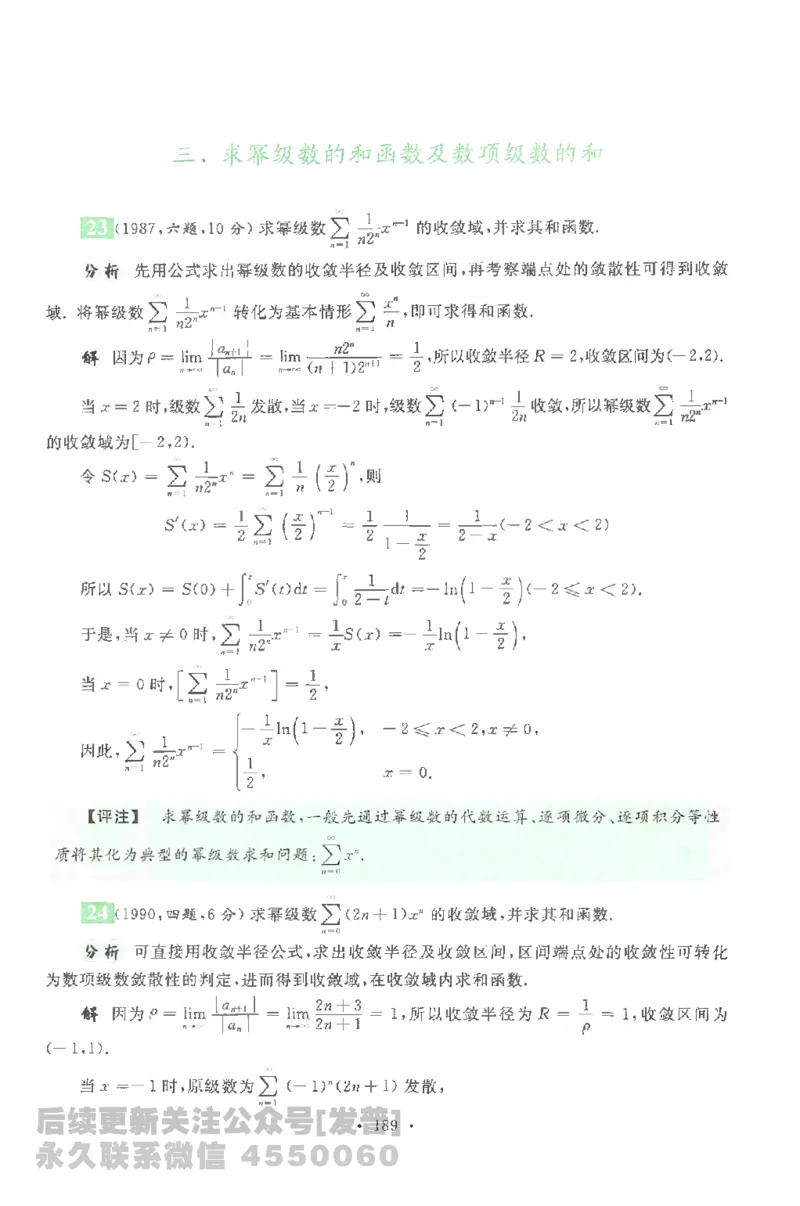 三、求幂级数的和函数及数项级数的和
23 (1987,六题,10 分) 求幂级数 $\sum_{n=1}^{\infty} \frac{1}{n2^n}x^{n-1}$ 的收敛域,并求其和函数.
分析 先用公式求出幂级数的收敛半径及收敛区间,再考察端点处的敛散性可得到收敛
域. 将幂级数 $\sum_{n=1}^{\infty} \frac{1}{n2^n}x^{n-1}$ 转化为基本情形 $\sum_{n=1}^{\infty} \frac{x^n}{n}$,即可求得和函数.
解 因为 $\rho = \lim_{n\to\infty} \frac{|a_{n+1}|}{|a_n|} = \lim_{n\to\infty} \frac{n2^n}{(n+1)2^{n+1}} = \frac{1}{2}$,所以收敛半径 R = 2,收敛区间为(-2,2).
当 x = 2 时,级数 $\sum_{n=1}^{\infty} \frac{1}{2n}$ 发散,当 x = -2 时,级数 $\sum_{n=1}^{\infty} (-1)^{n-1} \frac{1}{2n}$ 收敛,所以幂级数 $\sum_{n=1}^{\infty} \frac{1}{n2^n}x^{n-1}$
的收敛域为[-2,2).
令 $S(x) = \sum_{n=1}^{\infty} \frac{1}{n2^n}x^n = \sum_{n=1}^{\infty} \frac{1}{n}\left(\frac{x}{2}\right)^n$,则
$S'(x) = \frac{1}{2}\sum_{n=1}^{\infty}\left(\frac{x}{2}\right)^{n-1} = \frac{1}{2}\frac{1}{1-\frac{x}{2}} = \frac{1}{2-x}(-2<x<2)$
所以 $S(x) = S(0)+\int_0^x S'(t)dt = \int_0^x \frac{1}{2-t}dt = -\ln\left(1-\frac{x}{2}\right)(-2\leqslant x<2)$.
于是,当 $x\neq 0$ 时,$\sum_{n=1}^{\infty} \frac{1}{n2^n}x^{n-1} = \frac{1}{x}S(x) = -\frac{1}{x}\ln\left(1-\frac{x}{2}\right)$,
当 x = 0 时,$\left[\sum_{n=1}^{\infty} \frac{1}{n2^n}x^{n-1}\right] = \frac{1}{2}$,
因此,$\sum_{n=1}^{\infty} \frac{1}{n2^n}x^{n-1} = \begin{cases} -\frac{1}{x}\ln\left(1-\frac{x}{2}\right), & -2\leqslant x<2,x\neq 0, \\ \frac{1}{2}, & x=0. \end{cases}$
【评注】 求幂级数的和函数,一般先通过幂级数的代数运算、逐项微分、逐项积分等性
质将其化为典型的幂级数求和问题:$\sum_{n=0}^{\infty} x^n$.
24 (1990,四题,6 分) 求幂级数 $\sum_{n=0}^{\infty}(2n+1)x^n$ 的收敛域,并求其和函数.
分析 可直接用收敛半径公式,求出收敛半径及收敛区间,区间端点处的收敛性可转化
为数项级数敛散性的判定,进而得到收敛域,在收敛域内求和函数.
解 因为 $\rho = \lim_{n\to\infty} \frac{|a_{n+1}|}{|a_n|} = \lim_{n\to\infty} \frac{2n+3}{2n+1} = 1$,所以收敛半径为 $R = \frac{1}{\rho} = 1$,收敛区间为
(-1,1).
当 x = -1 时,原级数为 $\sum_{n=1}^{\infty} (-1)^n(2n+1)$ 发散,
后续更新关注公众号[发普]
· 189 ·
永久联系微信 4550060